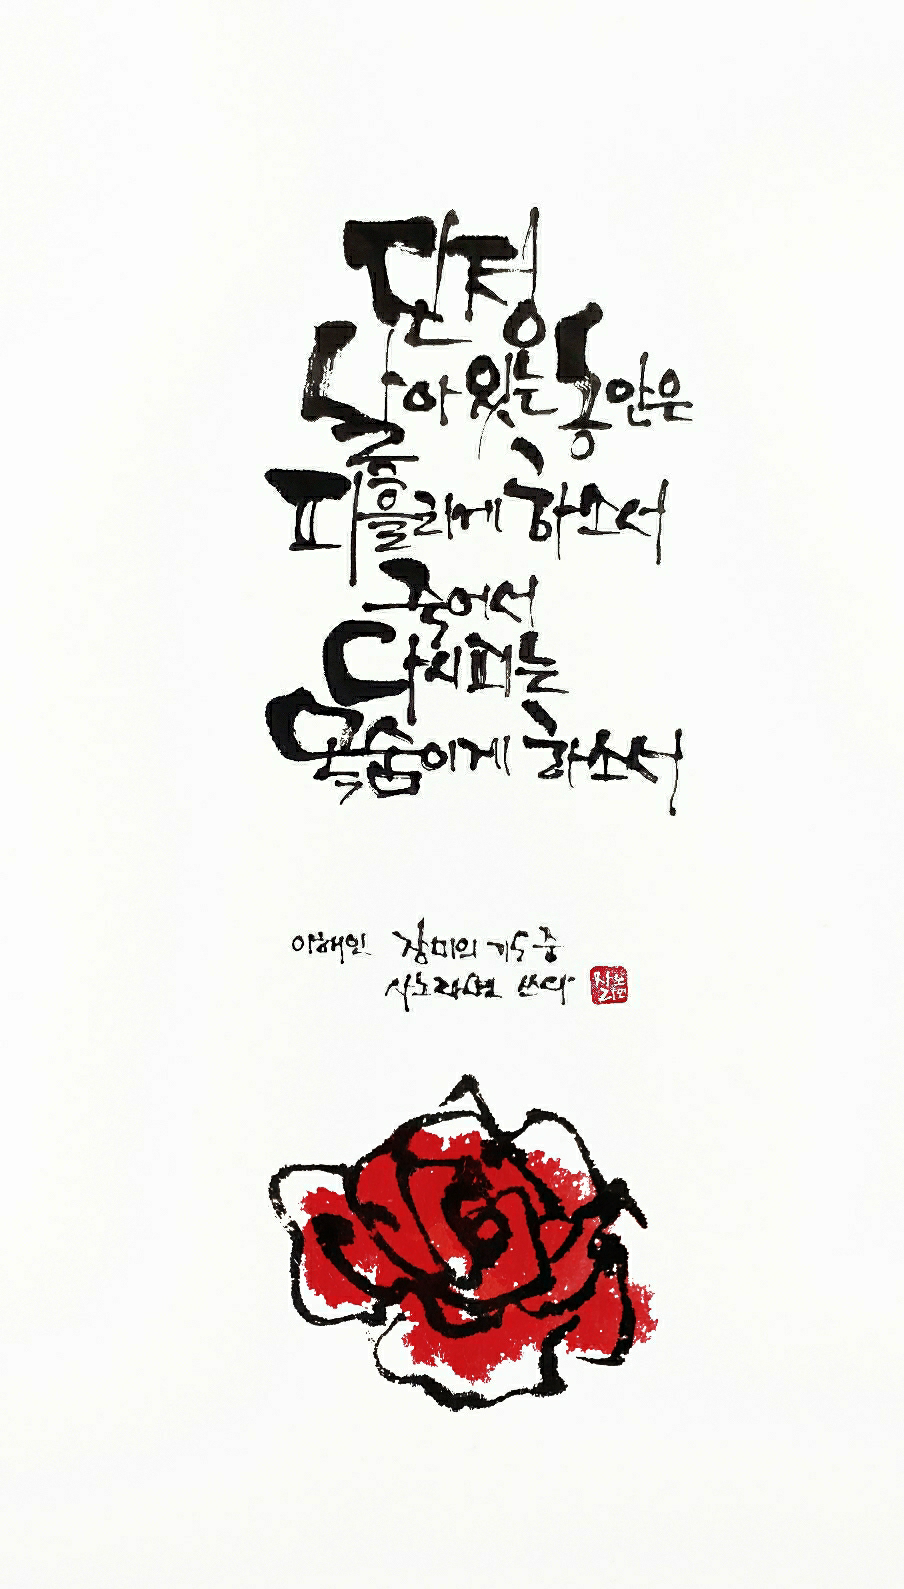 단정
살아있는 동안은
피 흘리게 하소서
죽어서
다시 피는
목숨이게 하소서
이해인 장미의 기도 중
사노라면 쓰다